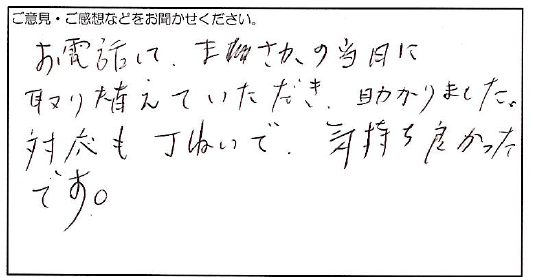 ご意見・ご感想などをお聞かせください。
お電話して、まさかの当日に
取り替えていただき、助かりました。
対応も丁ねいで、気持ち良かった
です。